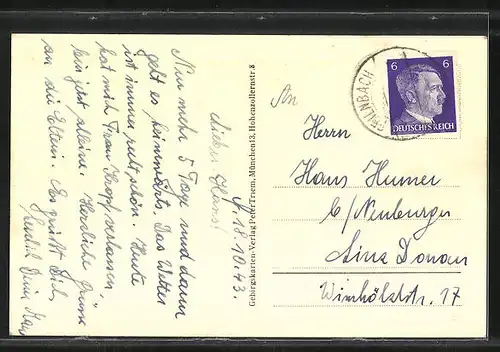 18.10.43.
Lieber Hans!
Nun mehr 5 Tage und dann
geht es heimwärts. Das Wetter
ist immer recht schön. Heute
hat mich Frau verlassen
bin jetzt allein. Herzliche Grüsse
an die Eltern. Es grüßt Dich
herzlich Dein
Gebirgskarten-Verlag Peef Triem, München 13, Hohenzollernstr. 8
6 6
DEUTSCHES REICH
An
Herrn
Hans Humer
b/Neuburger
Linz Donau
17